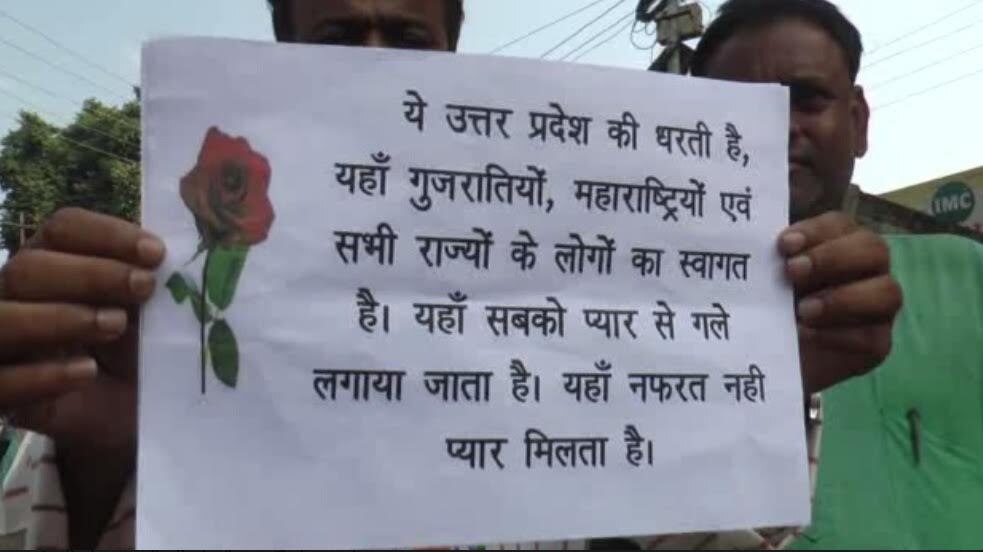 ये उत्तर प्रदेश की धरती है,
यहाँ गुजरातियों, महाराष्ट्रियों एवं
सभी राज्यों के लोगों का स्वागत
है। यहाँ सबको प्यार से गले
लगाया जाता है। यहाँ नफरत नही
प्यार मिलता है।
IMC